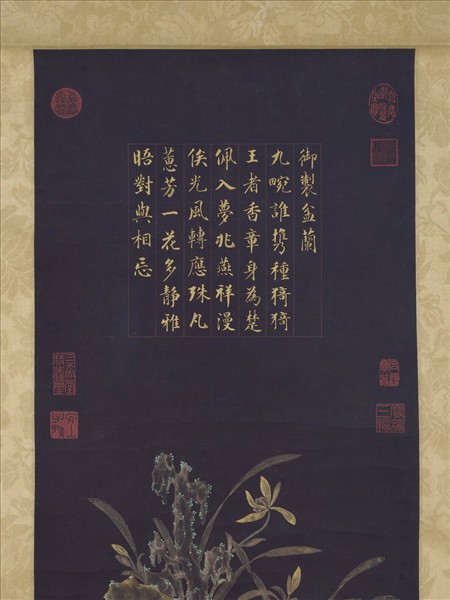 御製盆蘭
九畹誰携種猗猗
王者香章身為楚
佩入夢兆燕祥漫
俟光風轉應殊凡
蕙芳一花多静雅
晤對與相忘